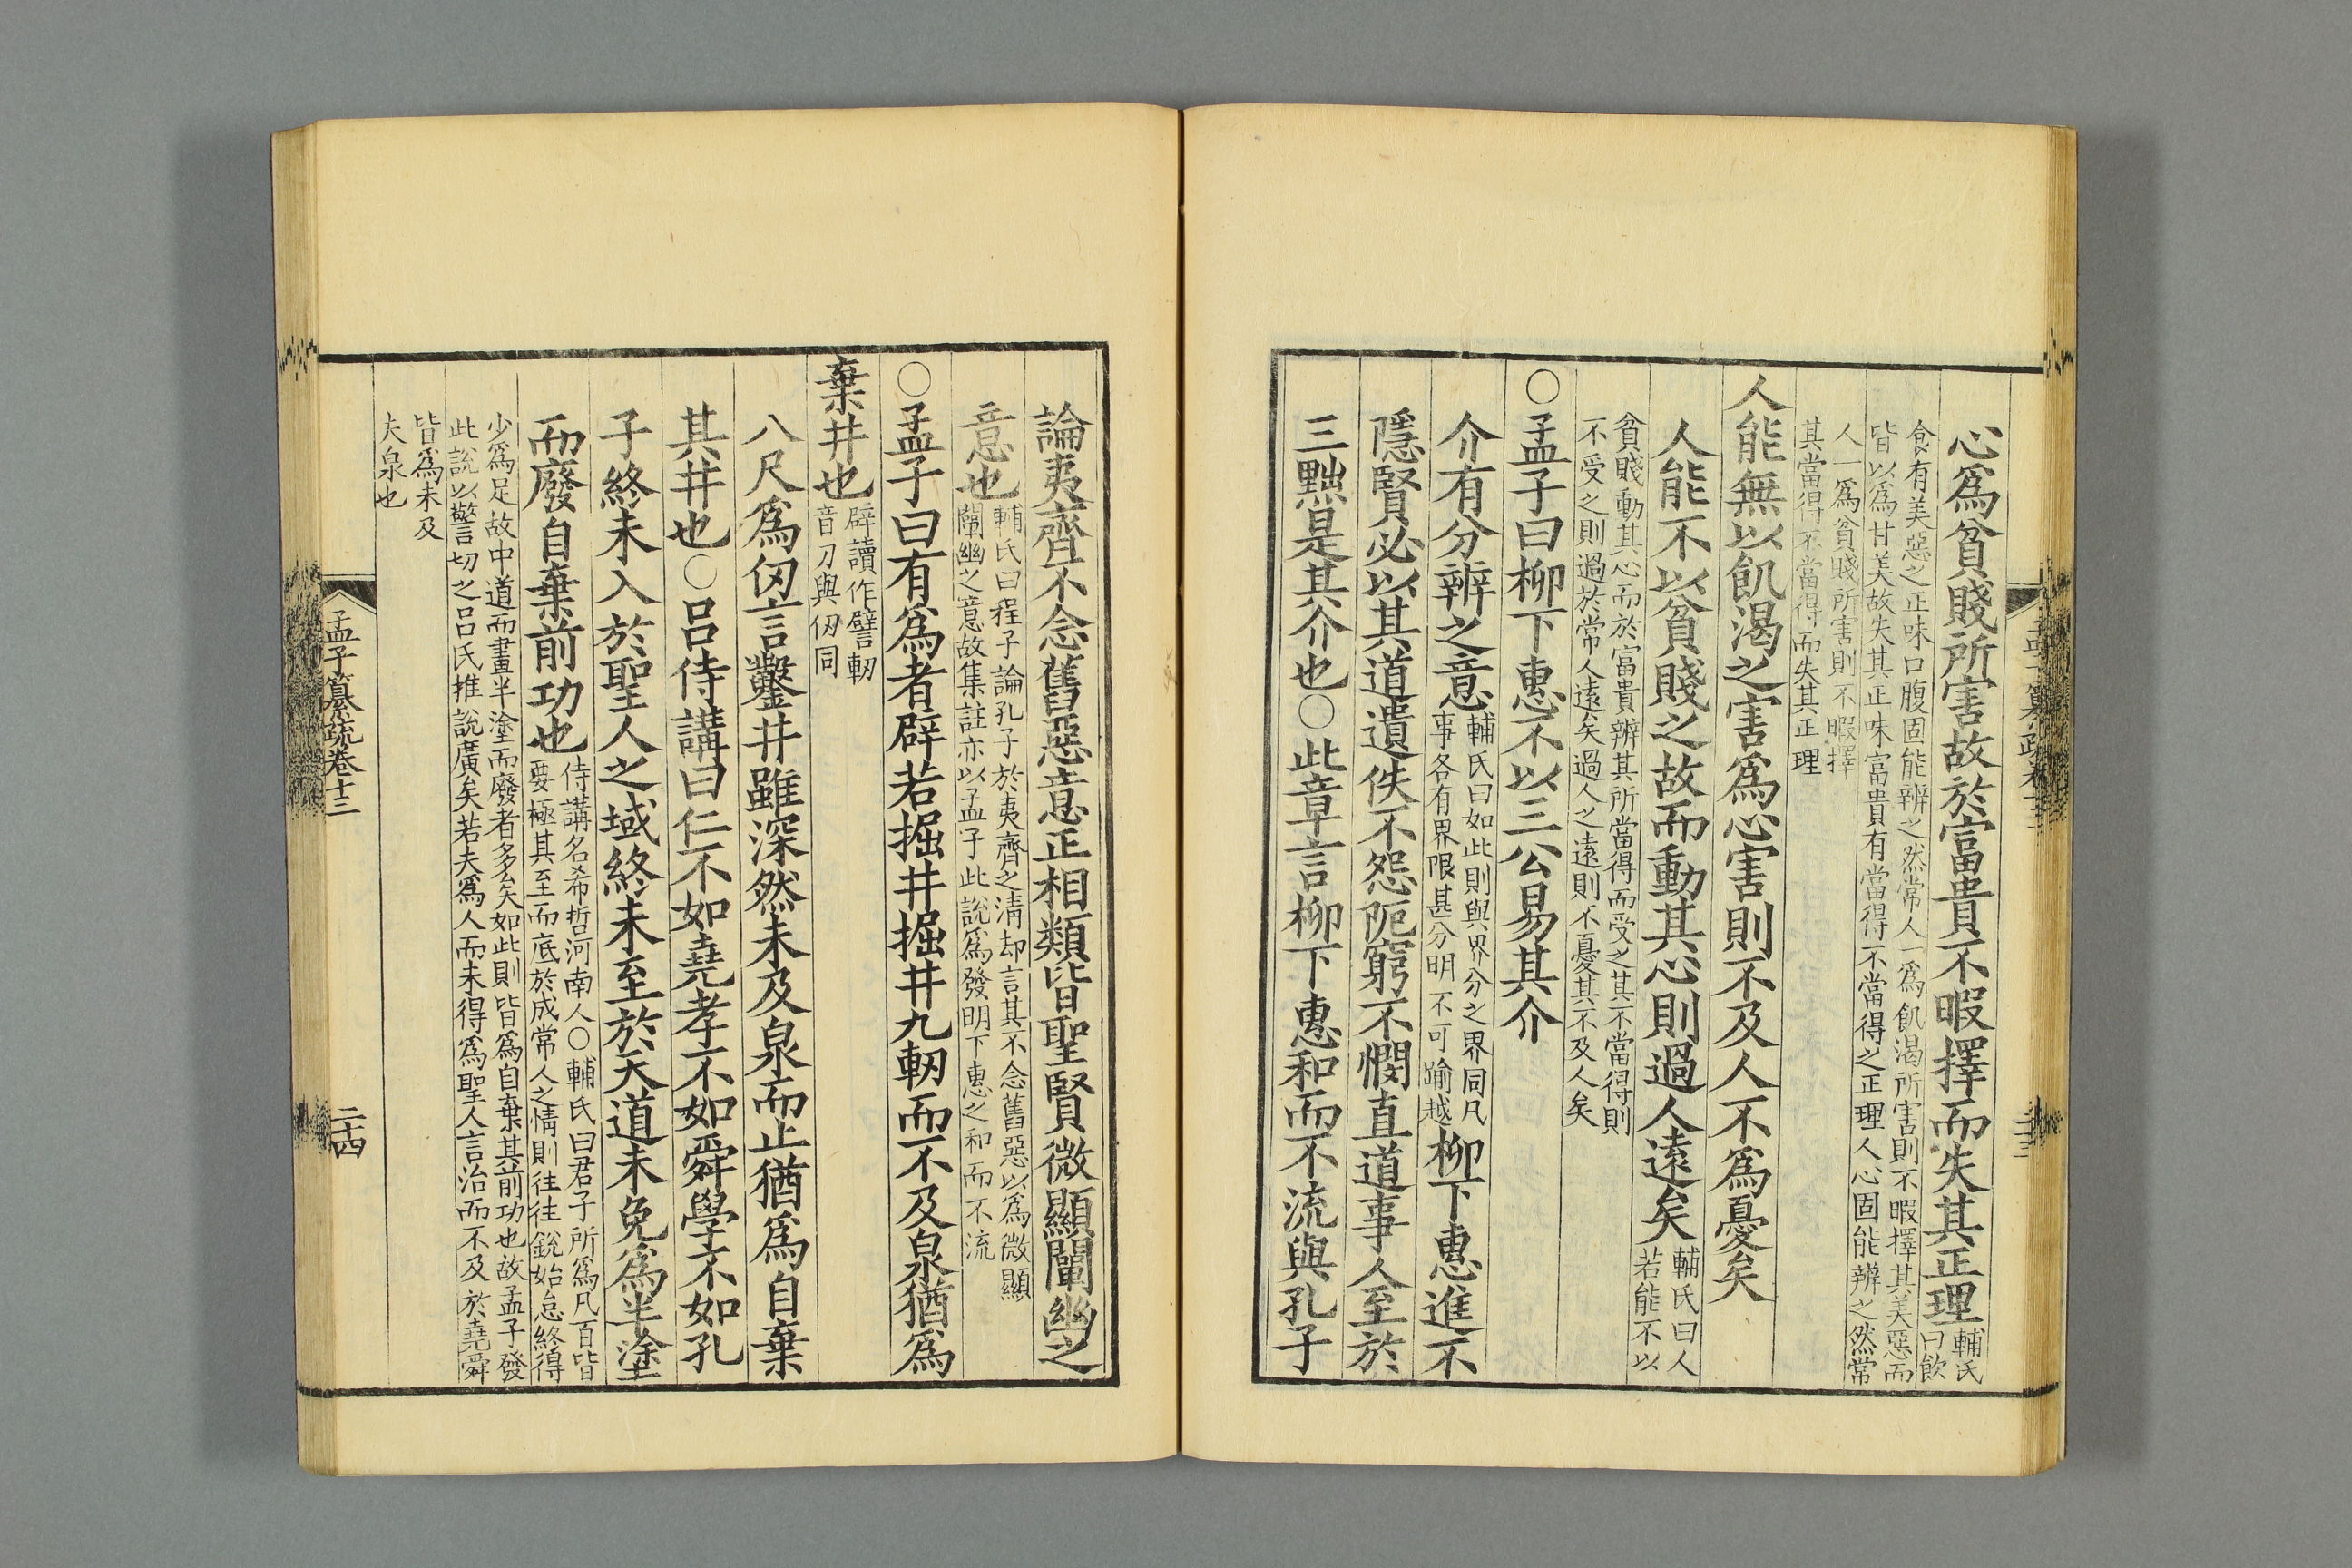 心爲貧賤所害故於富貴不暇擇而失其正理輔氏曰飲
食有美惡之正味口腹固能辨之然常人一爲飢渴所害則不暇擇其美惡而
皆以爲甘美故失其正味富貴有當得不當得之正理人心固能辨之然常
人一爲貧賤所害則不暇擇
其當得不當得而失其正理
人能無以飢渴之害爲心害則不及人不爲憂矣
人能不以貧賤之故而動其心則過人遠矣輔氏曰人若能不以
貧賤動其心而於富貴辨其所當得而受之其不當得則
不受之則過於常人遠矣過人之遠則不憂其不及人矣
〇孟子曰柳下惠不以三公易其介
介有分辨之意輔氏曰如此則與界分之界同凡事各有界限甚分明不可踰越柳下惠進不
隱賢必以其道遺佚不怨阨窮不憫直道事人至於
三黜是其介也〇此章言柳下惠和而不流與孔子
孟子纂疏卷十三
二十三
論夷齊不念舊惡意正相類皆聖賢微顯闡幽之
意也輔氏曰程子論孔子於夷齊之清却言其不念舊惡以爲微顯闡幽之意故集註亦以孟子此說爲發明下惠之和而不流
〇孟子曰有爲者辟若掘井掘井九軔而不及泉猶爲
棄井也辟讀作譬軔音刃與仞同
八尺爲仞言鑿井雖深然未及泉而止猶爲自棄
其井也〇呂侍講曰仁不如堯孝不如舜學不如孔
子終未入於聖人之域終未至於天道未免爲半塗
而廢自棄前功也侍講名希哲河南人〇輔氏曰君子所爲凡百皆要極其至而底於成常人之情則往往銳始怠終得
少爲足故中道而畫半塗而廢者多矣如此則皆爲自棄其前功也故孟子發
此說以警切之呂氏推說廣矣若夫爲人而未得爲聖人言治而不及於堯舜
皆爲未及
夫泉也
孟子纂疏卷十三
二十四